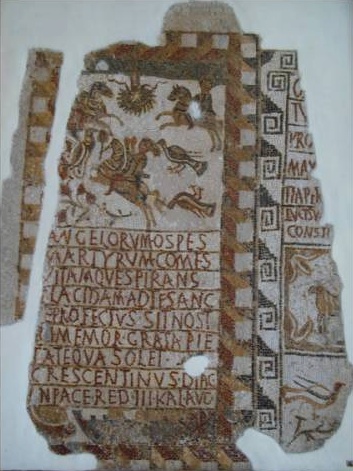 ANGELORVMOSPES
MARTYRVMCOMES
ITAMQVESPIRANS
LACIDAMADTESANC
PROFECTVS·SITNOST
IMEMORGRATAPIE
TATEQVASOLET
CRESCENTINVS·DIAC
NPACERED·III·KALAVG
PRO
MAV
CONST